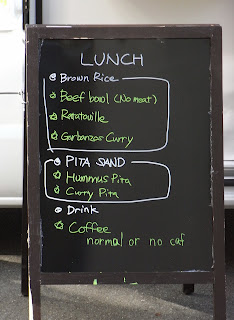 LUNCH
Brown Rice
Beef bowl (No meat)
Ratatouille
Garbanzos Curry
PITA SAND
Hummus Pita
Curry Pita
Drink
Coffee
normal or no caf